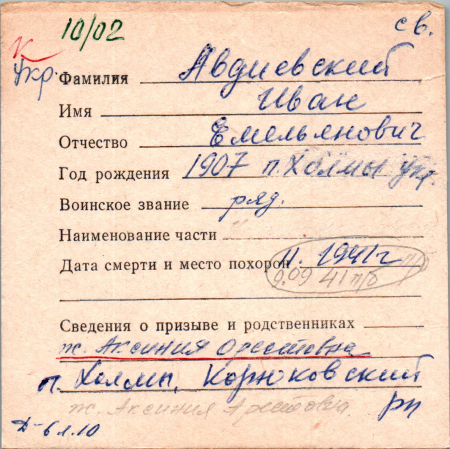 10/02 св.
к
Укр.
Фамилия Авдиевский
Имя Иван
Отчество Емельянович
Год рождения 1907 п. Холмы укр.
Воинское звание ряд.
Наименование части
Дата смерти и место похорон 11. 1941г
9.09 41 п/б
Сведения о призыве и родственниках
ж. Аксиния Орестовна
п. Холмы, Корюковский
рн
ж. Аксиния Арестовна